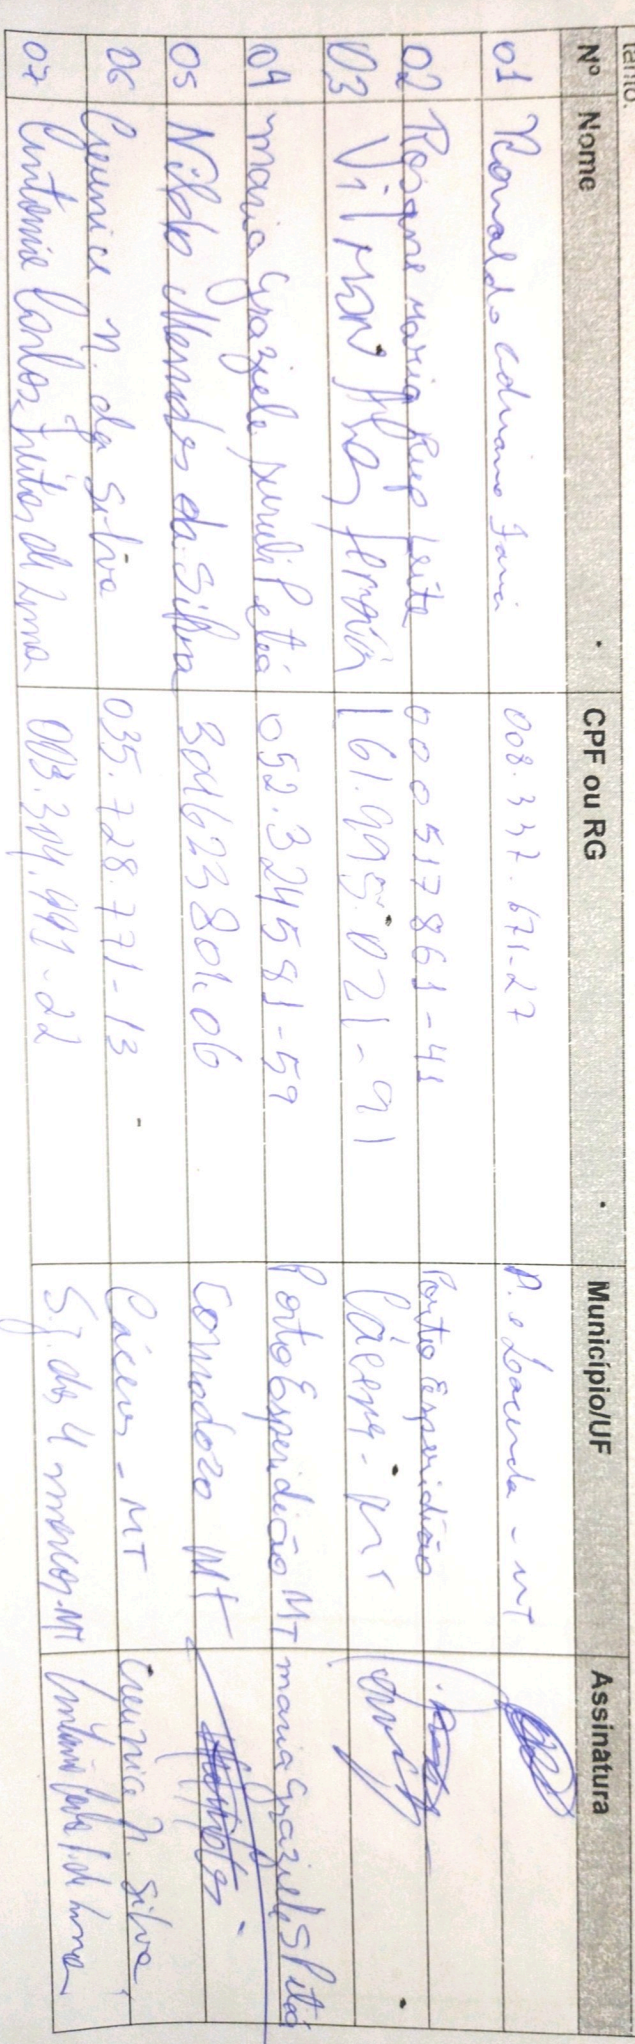 tanto.
Nº Nome CPF ou RG Município/UF Assinatura
01 Ronaldo Adriano 008.337.671-27 P. e Lacerda - MT
02 Rosane Maria Leite 000517861-41 Porto Esperidião
03 Vilmon 161.995.021-91 Cáceres - MT
04 Maria Graziele Petró 052.324581-59 Porto Esperidião MT Maria Graziele S Petró
05 Nildo Mendes da Silva 304623801.06 Comodoro MT
06 Creunice N. da Silva 035.728.771-13 Cáceres - MT Creunice N. Silva
07 Antonio Carlos Freitas de Lima 003.314.991-22 S.J. dos 4 marcos-MT Antonio Carlos F. de Lima